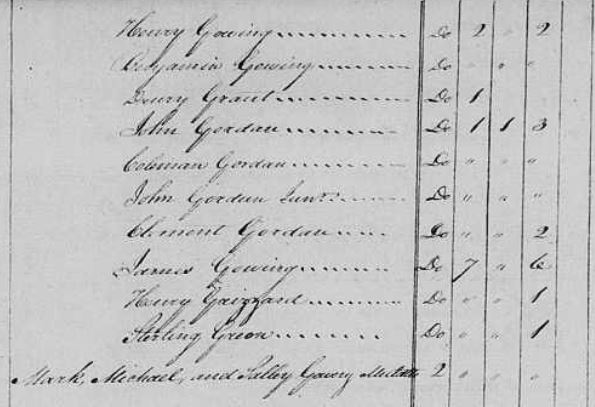 Henry Gowing Do 2 " 2
Benjamin Gowing Do " " "
Drury Grant Do 1
John Gordan Do 1 1 3
Coleman Gordan Do " " "
John Gordan Junr. Do " " "
Clement Gordan Do " " 2
James Gowing Do 7 " 6
Henry Grizzard Do " " 1
Sterling Green Do " " 1
Mark, Michael, and Salley Gowing 2 " " "